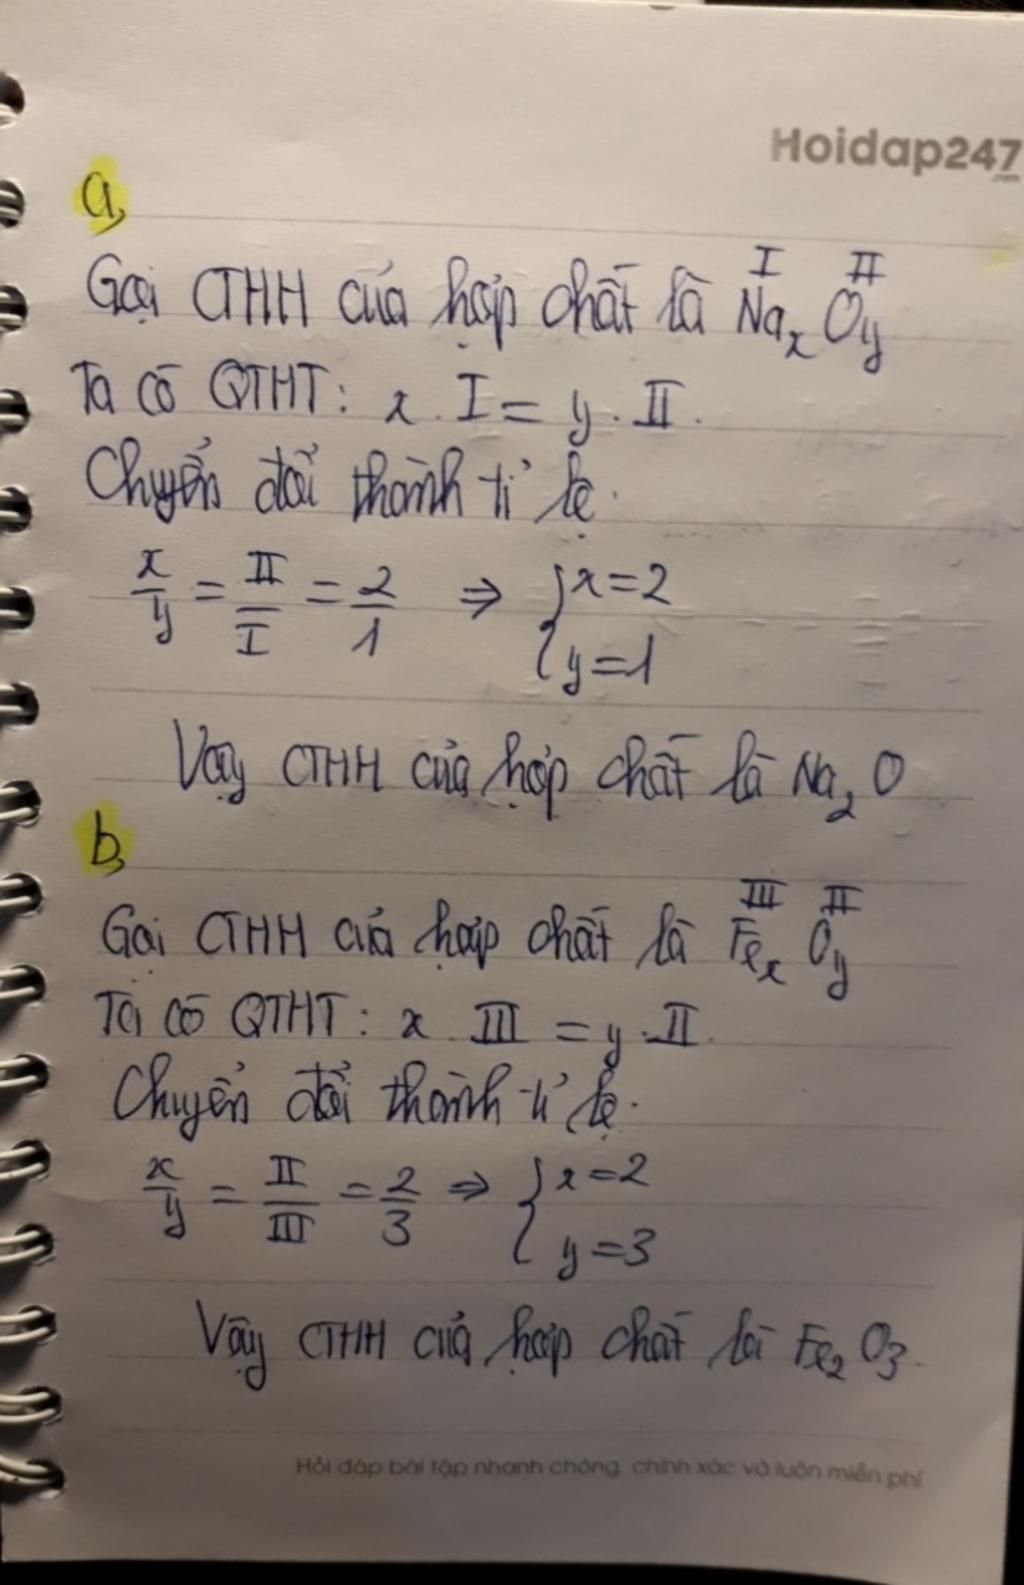 Hoidap247
.com
a,
Gọi CTHH của hợp chất là NaₓOᵧ
I II
Ta có QTHT: x . I = y . II.
Chuyển đổi thành tỉ lệ.
x/y = II/I = 2/1 ⇒ { x = 2
y = 1
Vậy CTHH của hợp chất là Na₂O
b,
III II
Gọi CTHH của hợp chất là FeₓOᵧ
Ta có QTHT: x . III = y . II.
Chuyển đổi thành tỉ lệ.
x/y = II/III = 2/3 ⇒ { x = 2
y = 3
Vậy CTHH của hợp chất là Fe₂O₃.
Hỏi đáp bài tập nhanh chóng, chính xác và luôn miễn phí